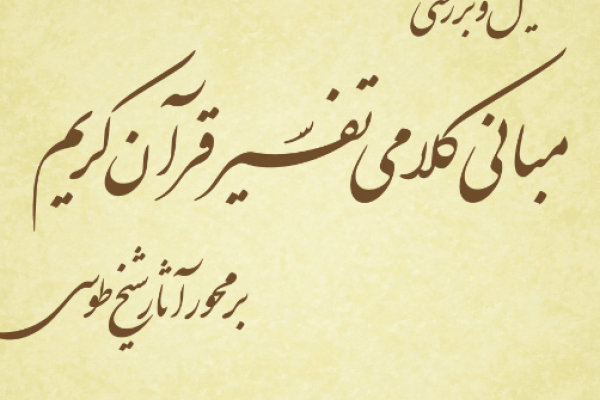 و بررسی
مبانی کلامی تفسیر قرآن کریم
بر محور آثار شیخ طوسی